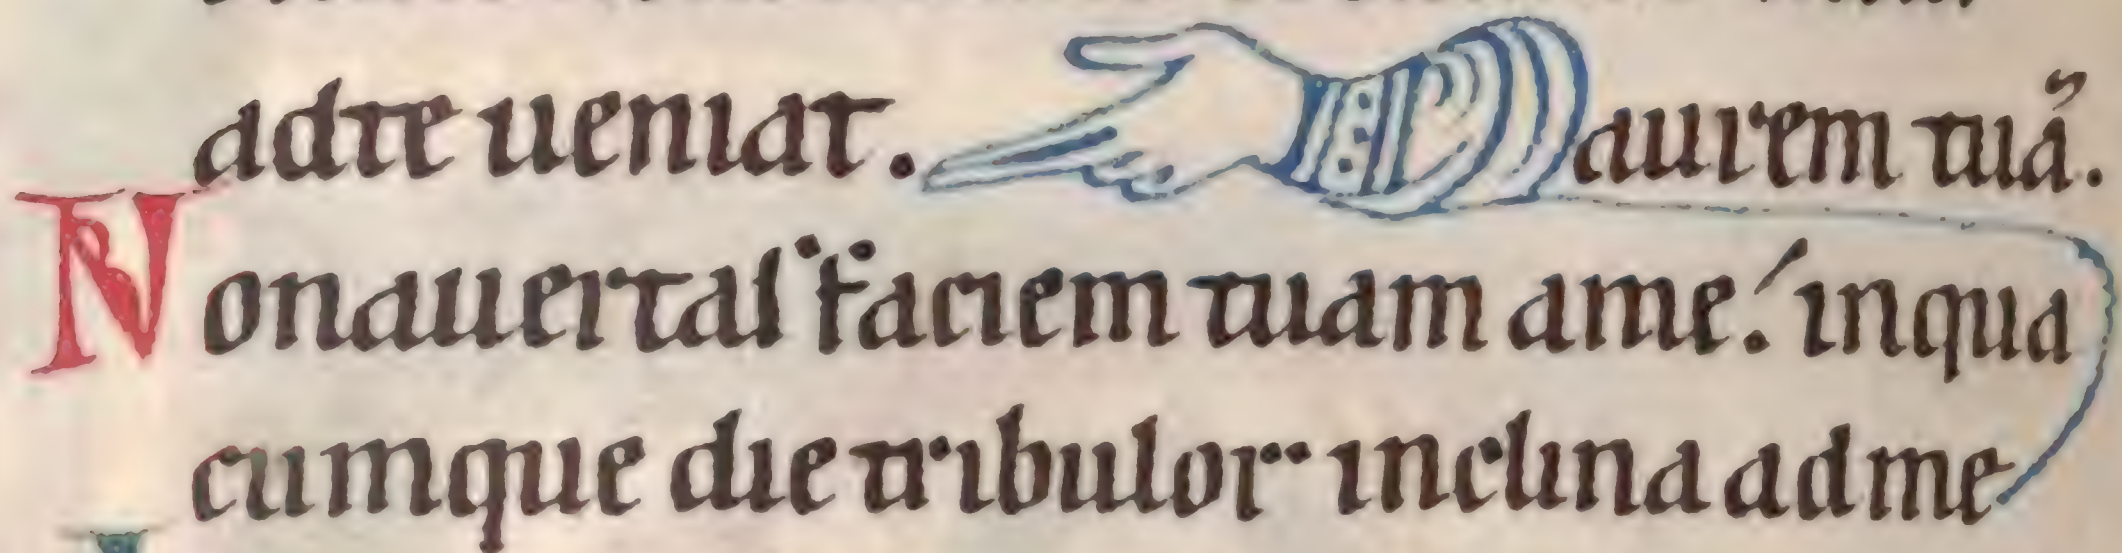 adte ueniat. aurem tuã.
Non auertas faciem tuam ame: inqua
cumque die tribulor inclina ad me